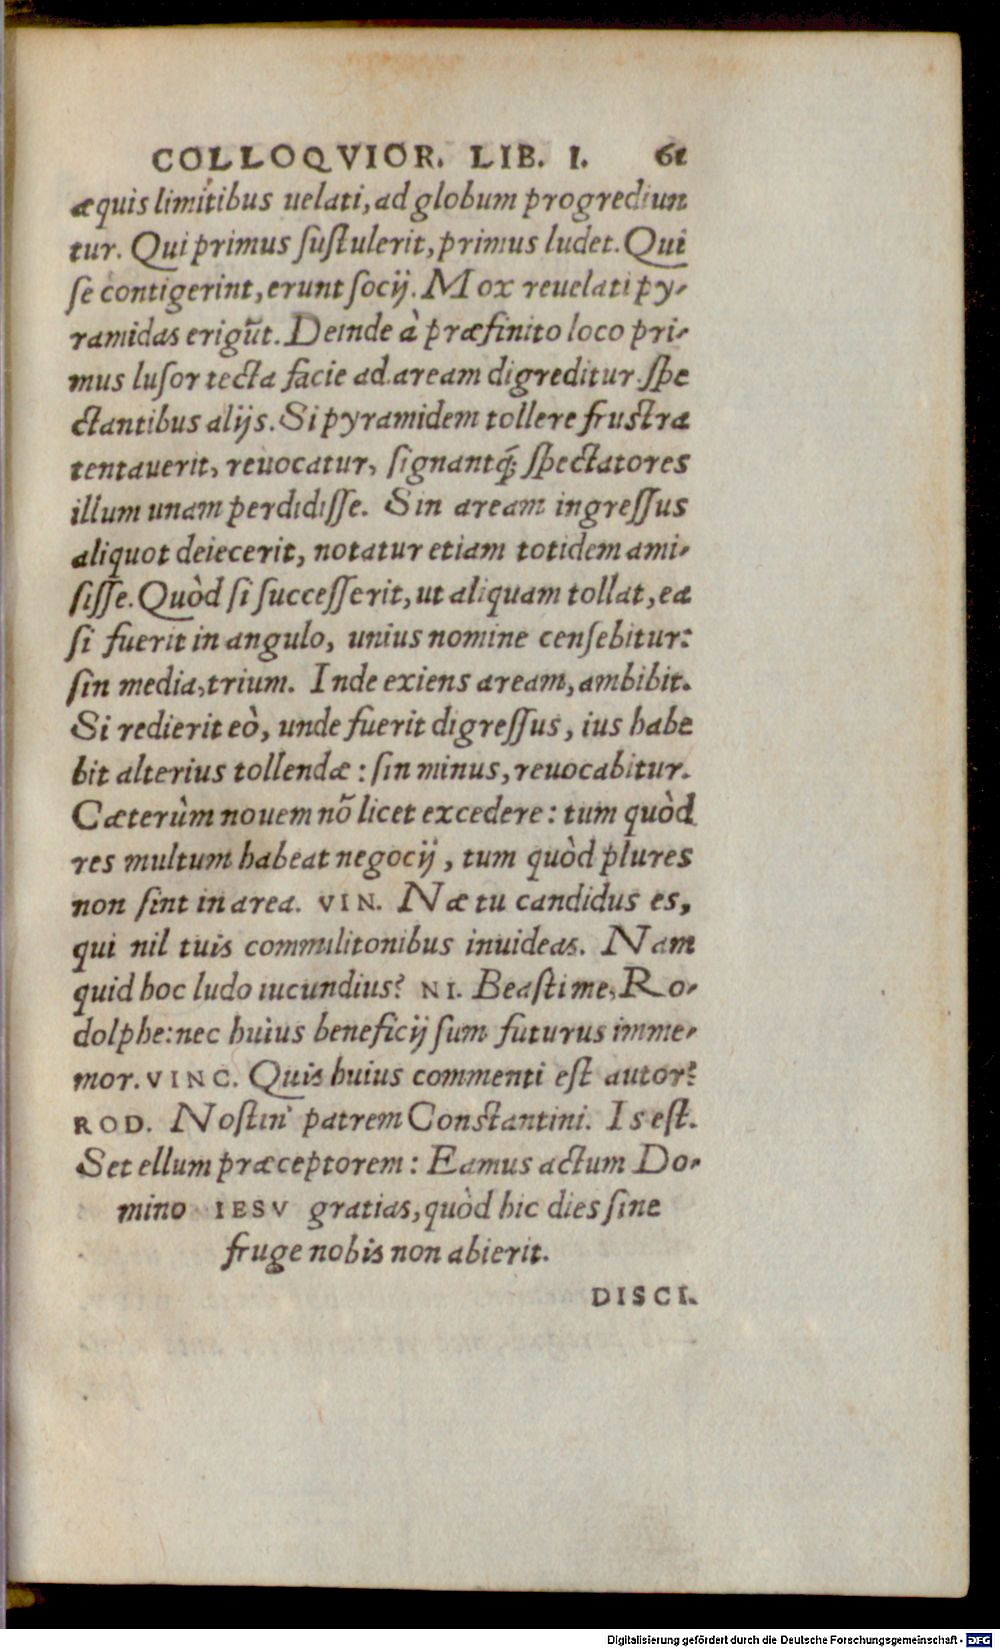 COLLOQVIOR. LIB. I. 61
æquis limitibus uelati, ad globum progrediun
tur. Qui primus ſuſtulerit, primus ludet. Qui
ſe contigerint, erunt ſocij. Mox reuelati py-
ramidas erigūt. Deinde à præfinito loco pri-
mus luſor tecta facie ad aream digreditur ſpe
ctantibus alijs. Si pyramidem tollere fruſtra
tentauerit, reuocatur, ſignantq́; ſpectatores
illum unam perdidiſſe. Sin aream ingreſſus
aliquot deiecerit, notatur etiam totidem ami-
ſiſſe. Quòd ſi ſucceſſerit, ut aliquam tollat, ea
ſi fuerit in angulo, unius nomine cenſebitur:
ſin media, trium. Inde exiens aream, ambibit.
Si redierit eò, unde fuerit digreſſus, ius habe
bit alterius tollendæ: ſin minus, reuocabitur.
Cæterùm nouem nō licet excedere: tum quòd
res multum habeat negocij, tum quòd plures
non ſint in area. VIN. Næ tu candidus es,
qui nil tuis commilitonibus inuideas. Nam
quid hoc ludo iucundius? NI. Beaſti me, Ro-
dolphe: nec huius beneficij ſum futurus imme-
mor. VINC. Quis huius commenti eſt autor?
ROD. Noſtin' patrem Conſtantini. Is eſt.
Set ellum præceptorem: Eamus actum Do-
mino IESV gratias, quòd hic dies ſine
fruge nobis non abierit.
DISCI.
Digitalisierung gefördert durch die Deutsche Forschungsgemeinschaft - DFG